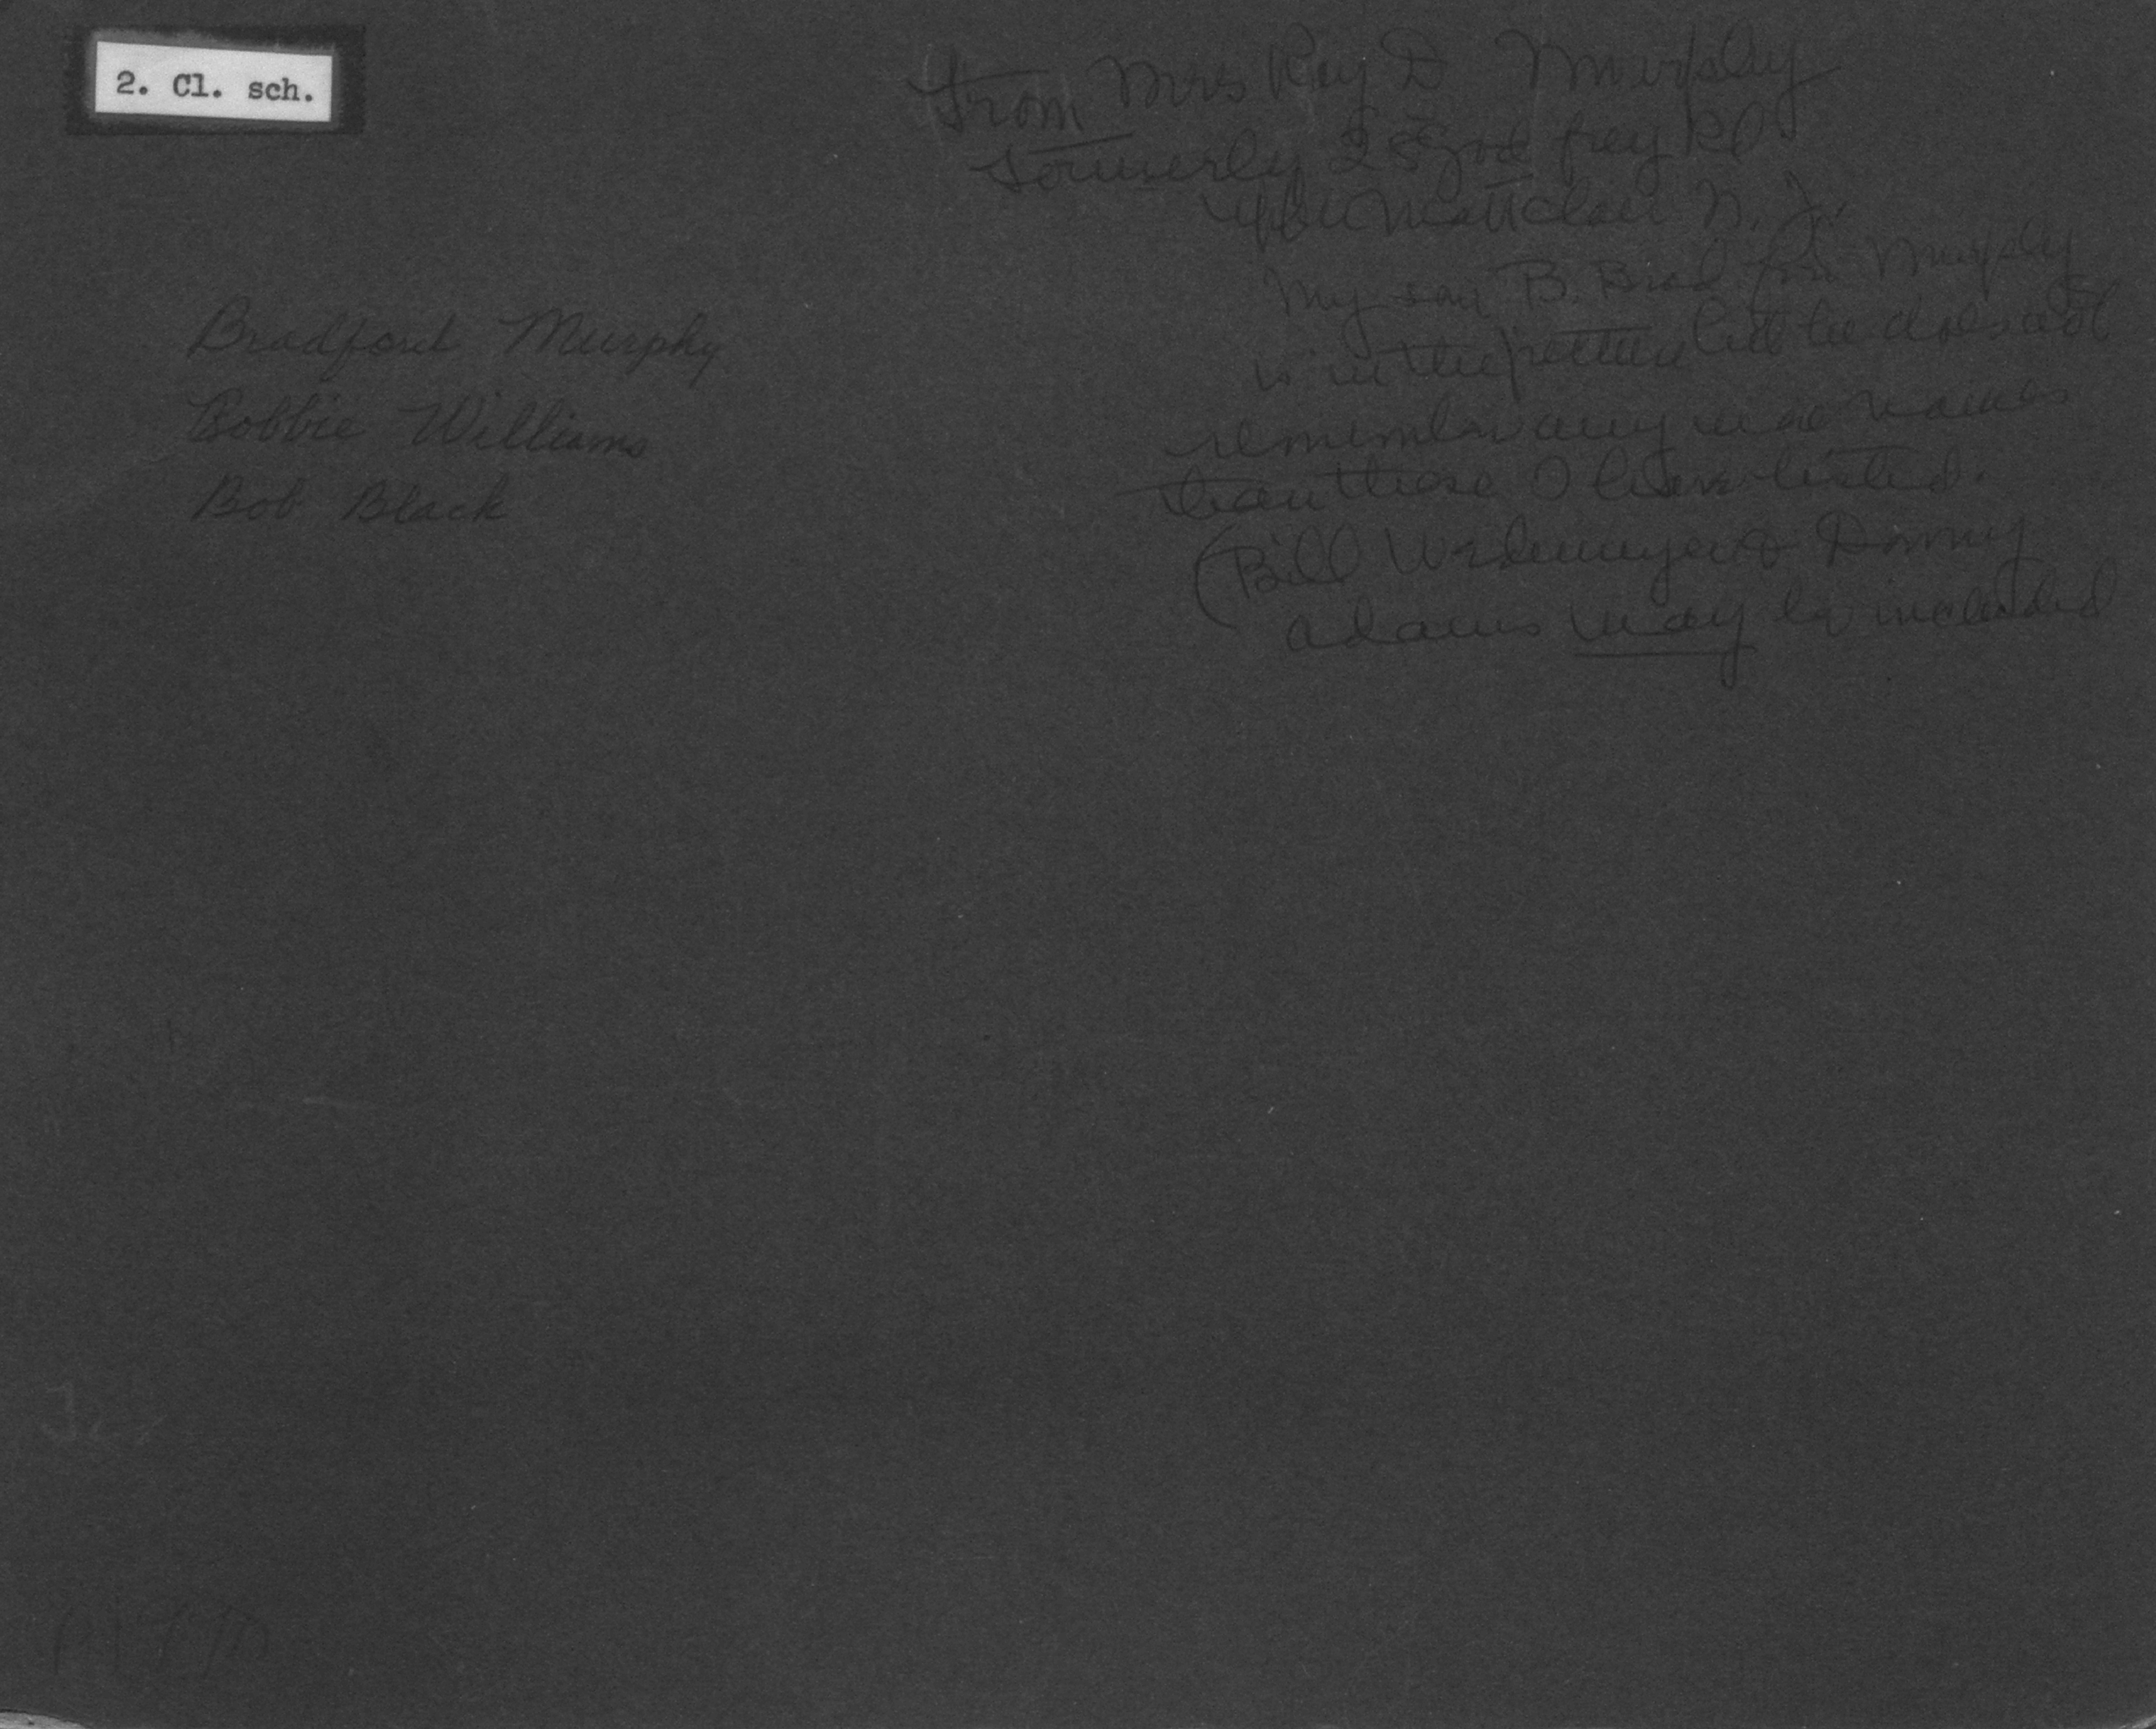 2. Cl. sch.
From Mrs Ray D Murphy
formerly
Montclair N. J.
My son B. Bradford Murphy
is in the picture but he does not
remember any more names
than those I have listed.
(Bill & Donny
Adams may be included
Bradford Murphy
Bobbie Williams
Bob Black